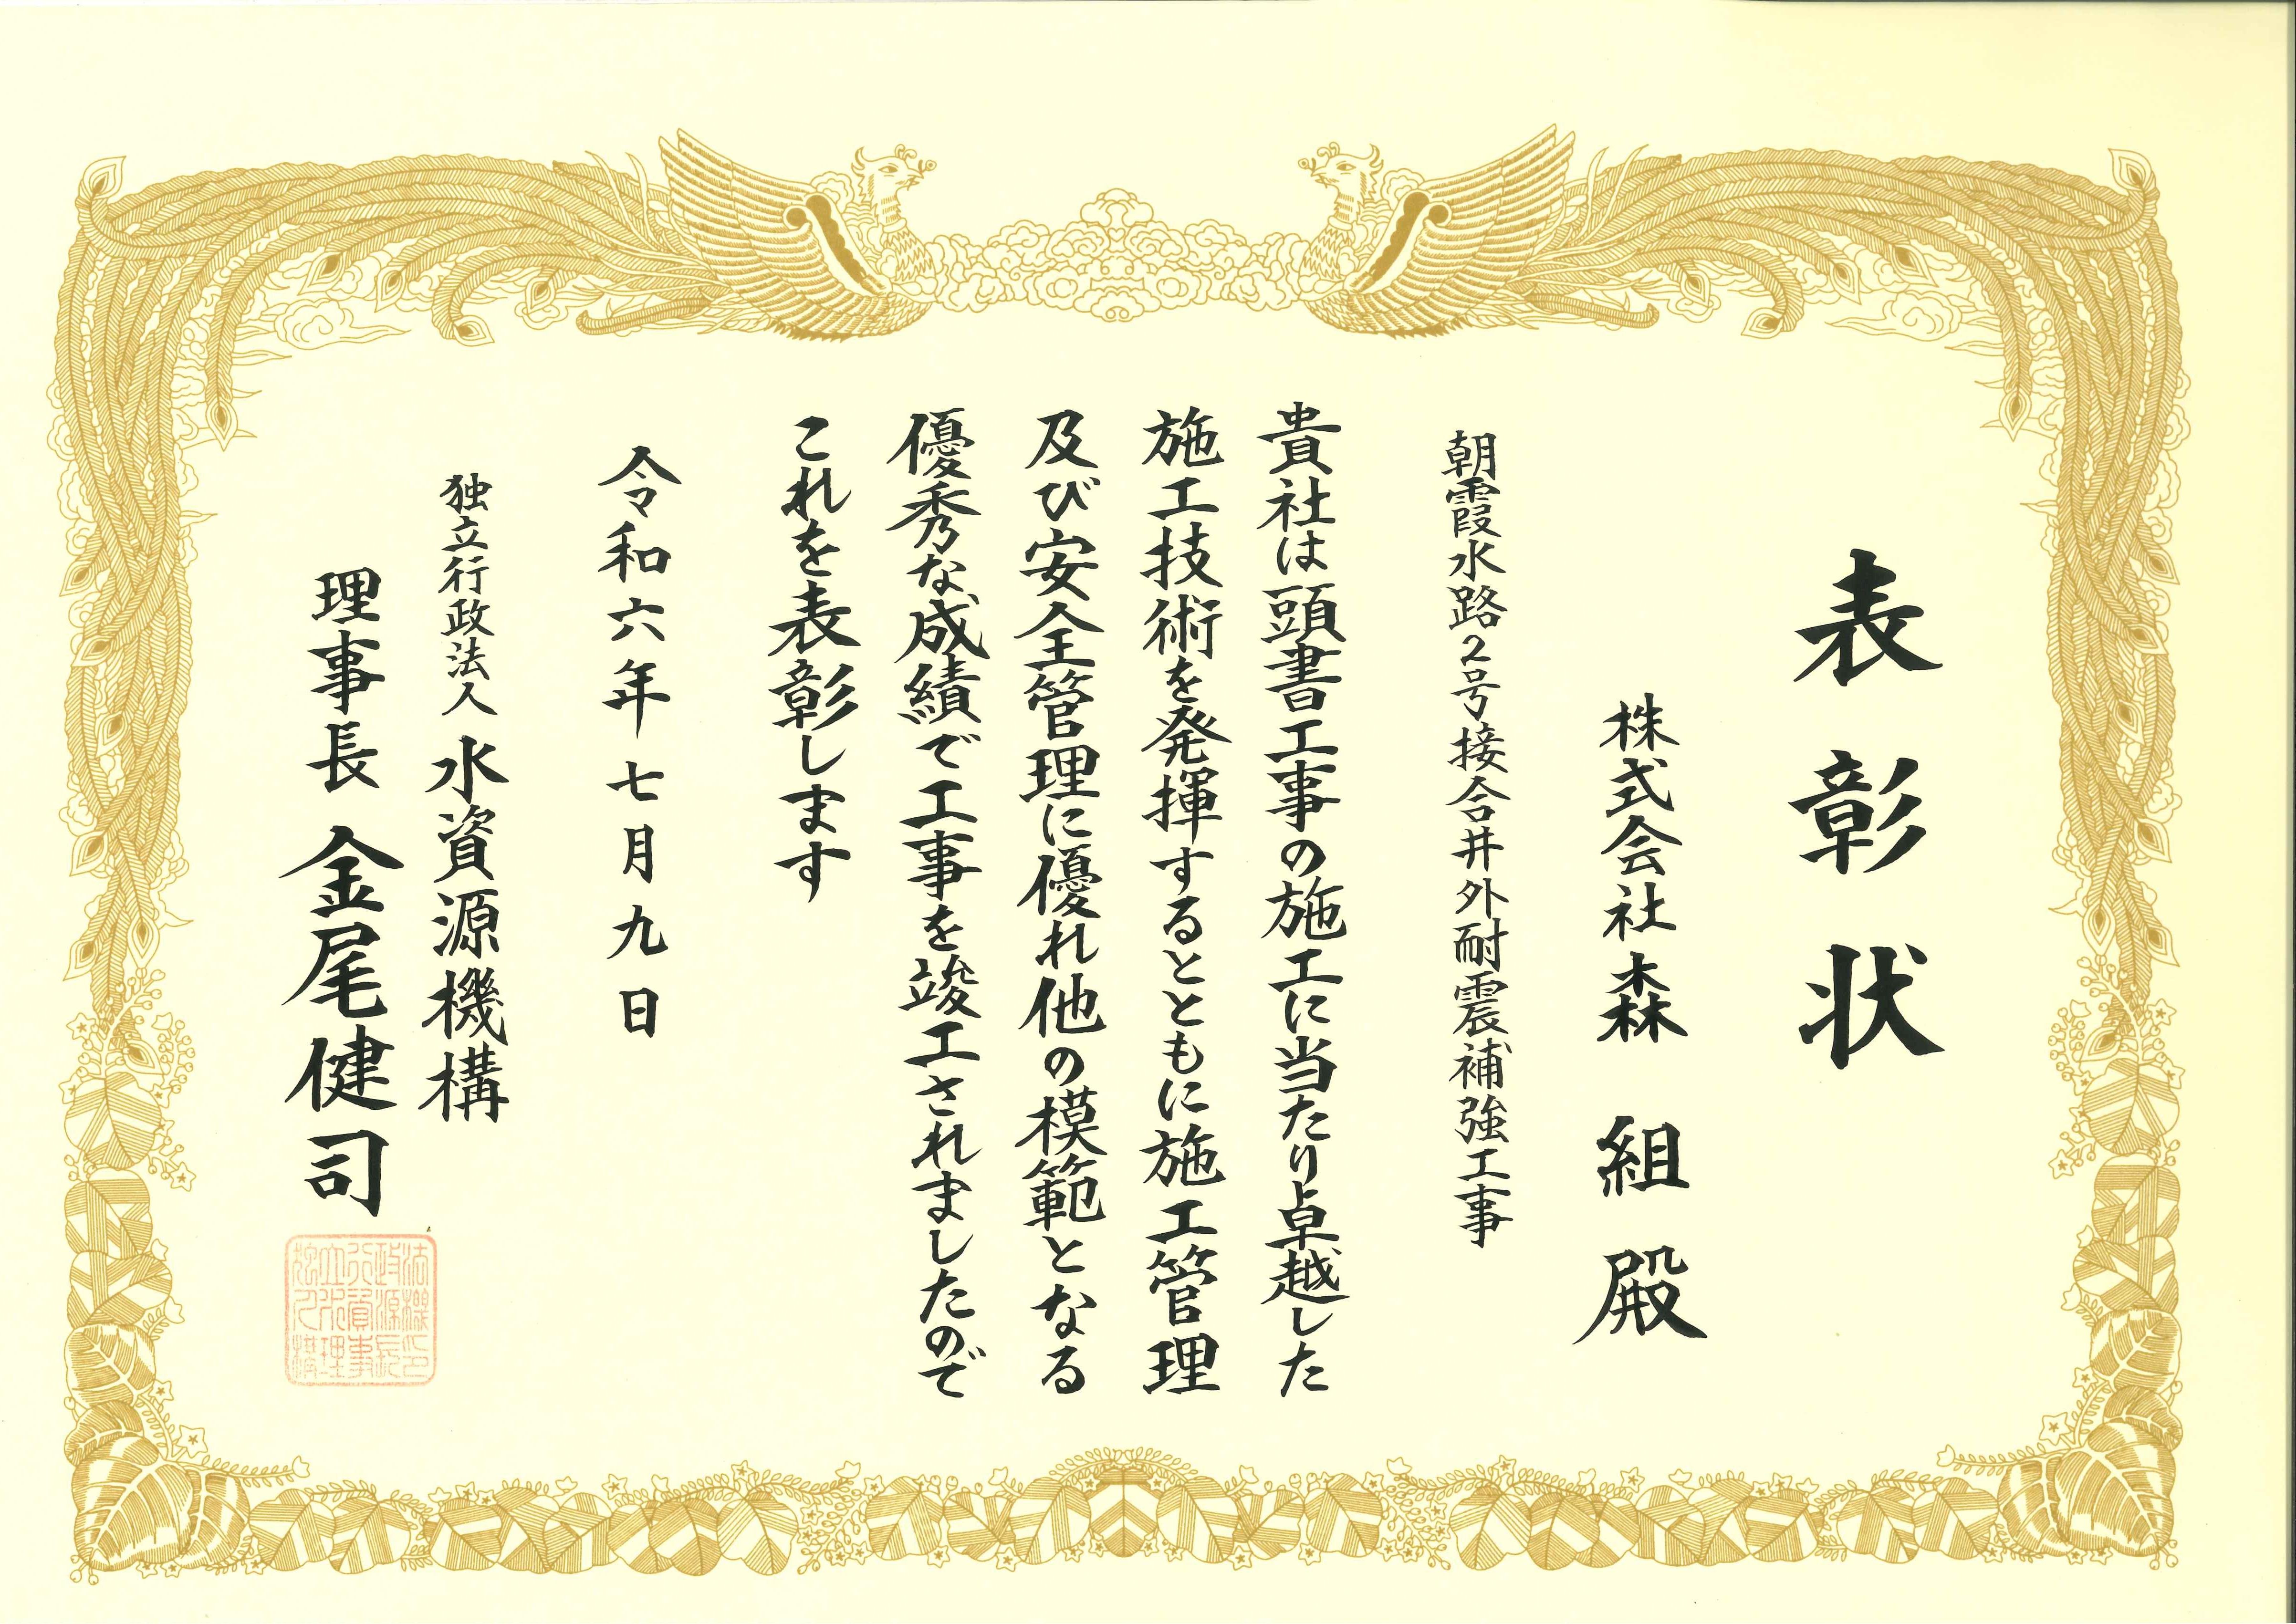 表彰状
株式会社森組殿
朝霞水路2号接合井外耐震補強工事
貴社は頭書工事の施工に当たり卓越した
施工技術を発揮するとともに施工管理
及び安全管理に優れ他の模範となる
優秀な成績で工事を竣工されましたので
これを表彰します
令和六年七月九日
独立行政法人水資源機構
理事長 金尾健司